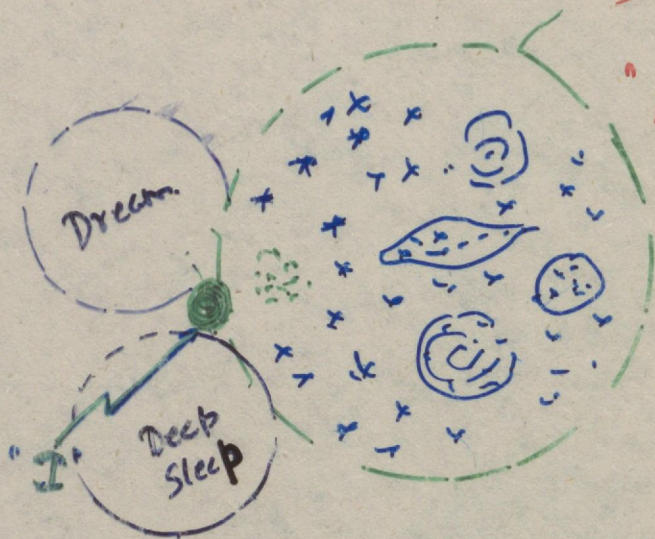 Dream
Deep
Sleep
"I"